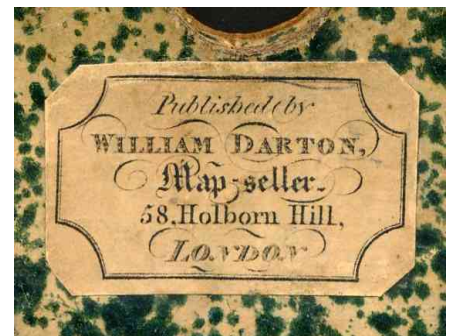 Published by
WILLIAM DARTON,
Map-seller.
58, Holborn Hill,
LONDON